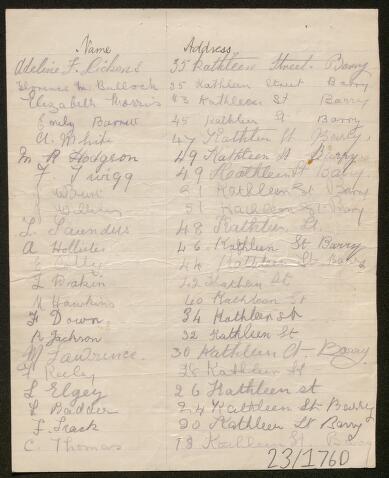 Name Address
Adeline F. Dickens 35 Kathleen Street. Barry
Florence M Bullock 35 Kathleen Street Barry
Elizabeth Morris 43 Kathleen St Barry
Emily Barnett 45 Kathleen St Barry
A. White 47 Kathleen St Barry
M A Hodgson 49 Kathleen St Barry
F Twigg 49 Kathleen St Barry
51 Kathleen St Barry
51 Kathleen St Barry
L Saunders 48 Kathleen St.
A Hollister 46 Kathleen St Barry
44 Kathleen St. Barry
L Dakin 42 Kathleen St
M Hawkins 40 Kathleen St
F Down 34 Kathleen St
A Jackson 32 Kathleen St
M Lawrence. 30 Kathleen St. Barry.
Kathleen St
L Elgey 26 Kathleen St
L Badner 24 Kathleen St. Barry
F. Strack 20 Kathleen St Barry
C. Thomas 18 Kathleen St. Barry
23/1760